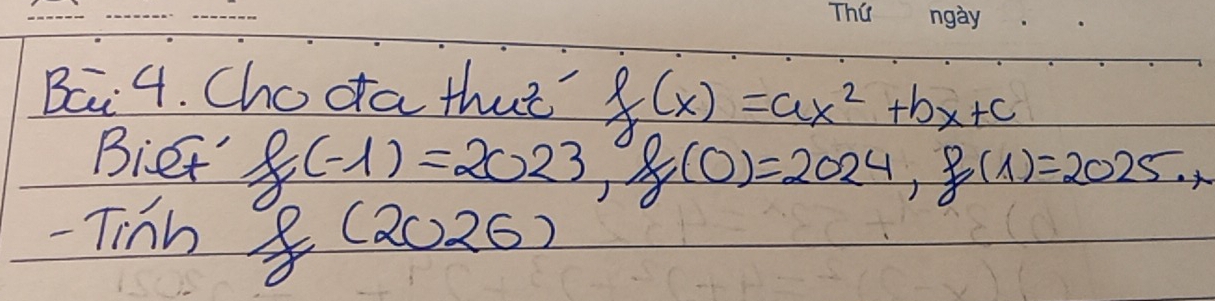 Thứ ngày . .
Bài 4. Cho đa thức f(x) = ax² + bx + c
Biết f(-1) = 2023, f(0) = 2024, f(1) = 2025.
- Tính f(2026)